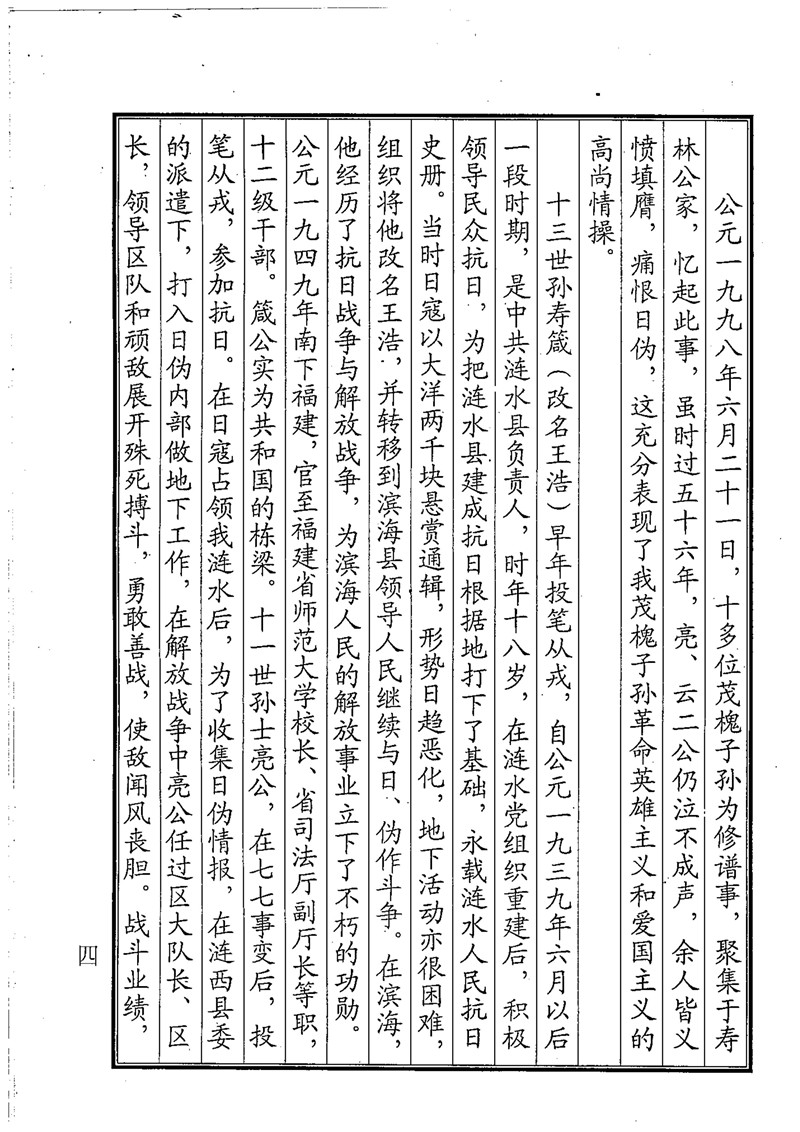 公元一九九八年六月二十一日，十多位茂槐子孙为修谱事，聚集于寿
林公家，忆起此事，虽时过五十六年，亮、云二公仍泣不成声，余人皆义
愤填膺，痛恨日伪，这充分表现了我茂槐子孙革命英雄主义和爱国主义的
高尚情操。
十三世孙寿箴（改名王浩）早年投笔从戎，自公元一九三九年六月以后
一段时期，是中共涟水县负责人，时年十八岁，在涟水党组织重建后，积极
领导民众抗日，为把涟水县建成抗日根据地打下了基础，永载涟水人民抗日
史册。当时日寇以大洋两千块悬赏通辑，形势日趋恶化，地下活动亦很困难，
组织将他改名王浩，并转移到滨海县领导人民继续与日、伪作斗争。在滨海，
他经历了抗日战争与解放战争，为滨海人民的解放事业立下了不朽的功勋。
公元一九四九年南下福建，官至福建省师范大学校长、省司法厅副厅长等职，
十二级干部。箴公实为共和国的栋梁。十一世孙士亮公，在七七事变后，投
笔从戎，参加抗日。在日寇占领我涟水后，为了收集日伪情报，在涟西县委
的派遣下，打入日伪内部做地下工作，在解放战争中亮公任过区大队长、区
长，领导区队和顽敌展开殊死搏斗，勇敢善战，使敌闻风丧胆。战斗业绩，
四